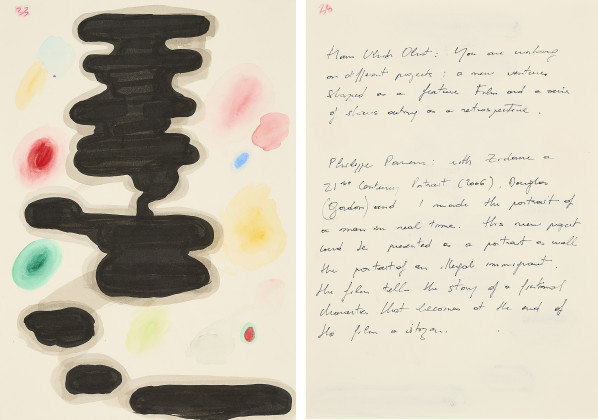 Hans Ulrich Obrist: You are working
on different projects: a new venture
shaped as a feature Film and a series
of shows acting as a retrospective.
Philippe Parreno: with Zidane a
21st Century Portrait (2006), Douglas
(Gordon) and I made the portrait of
a man in real time. this new project
could be presented as a portrait as well
the portrait of an illegal immigrant.
the film tells the story of a fictional
character that becomes at the end of
the film a citizen.